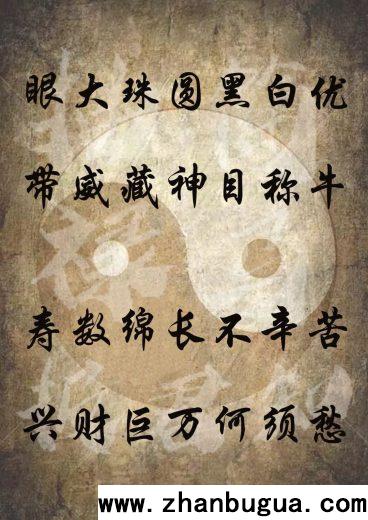 眼大珠圆黑白优
带威藏神目称牛
寿数绵长不辛苦
兴财巨万何须愁
www.zhanbugua.com